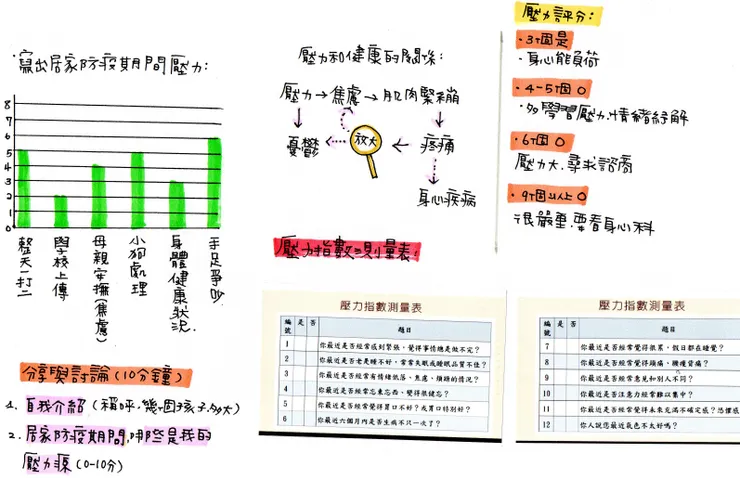 ·寫出居家防疫期間壓力:
8
7
6
5
4
3
2
1
0
整天一打二
學校上傳
母親安撫(焦慮)
小狗處理
身體健康狀況.
手足爭吵
分享與討論(10分鐘)
1. 自我介紹(稱呼.幾個孩子.多大)
2. 居家防疫期間,哪些是我的
壓力源(0-10分)
壓力和健康的關係:
壓力→焦慮→肌肉緊繃
憂鬱 放大 ← 疼痛
身心疾病
壓力指數測量表:
壓力指數測量表
編號 是 否 題目
1 你最近是否經常感到緊張,覺得事情總是做不完?
2 你最近是否老是睡不好,常常失眠或睡眠品質不佳?
3 你最近是否經常有情緒低落、焦慮、煩躁的情況?
4 你最近是否經常忘東忘西、變得很健忘?
5 你最近是否經常覺得胃口不好?或胃口特別好?
6 你最近六個月內是否生病不只一次了?
壓力評分:
·3個是
·身心能負荷
·4-5個O
·多學習壓力.情緒紓解
·6個O
壓力大.尋求諮商
·9個以上O
·很嚴重.要看身心科
壓力指數測量表
編號 是 否 題目
7 你最近是否經常覺得很累,假日都在睡覺?
8 你最近是否經常覺得頭痛、腰痠背痛?
9 你最近是否經常意見和別人不同?
10 你最近是否注意力經常難以集中?
11 你最近是否經常覺得未來充滿不確定感?恐懼感
12 你人說您最近氣色不太好嗎?